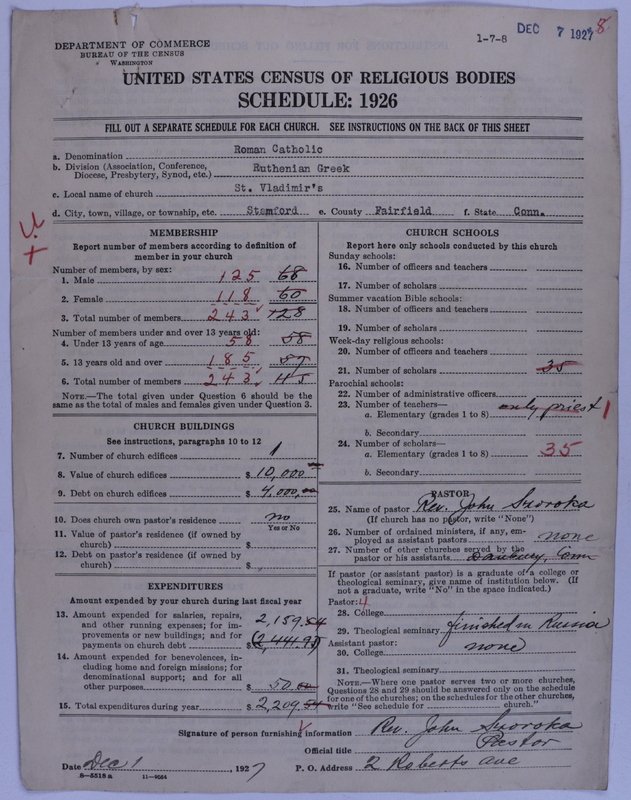 1-7-8
DEC 7 1927 8.
DEPARTMENT OF COMMERCE
BUREAU OF THE CENSUS
WASHINGTON
UNITED STATES CENSUS OF RELIGIOUS BODIES
SCHEDULE: 1926
FILL OUT A SEPARATE SCHEDULE FOR EACH CHURCH. SEE INSTRUCTIONS ON THE BACK OF THIS SHEET
a. Denomination Roman Catholic
b. Division (Association, Conference, Diocese, Presbytery, Synod, etc.) Ruthenian Greek
c. Local name of church St. Vladimir's
d. City, town, village, or township, etc. Stamford e. County Fairfield f. State Conn.
MEMBERSHIP
Report number of members according to definition of
member in your church
Number of members, by sex:
1. Male 125 68
2. Female 118 60
3. Total number of members 243 128
Number of members under and over 13 years old:
4. Under 13 years of age 58 58
5. 13 years old and over 185 87
6. Total number of members 243
NOTE.—The total given under Question 6 should be
same as the total of males and females given under Question 3.
CHURCH BUILDINGS
See instructions, paragraphs 10 to 12
7. Number of church edifices 1
8. Value of church edifices $ 10,000
9. Debt on church edifices $ 4,000,00
10. Does church own pastor's residence no
Yes or No
11. Value of pastor's residence (if owned by
church) $
12. Debt on pastor's residence (if owned by
church) $
EXPENDITURES
Amount expended by your church during last fiscal year
13. Amount expended for salaries, repairs,
and other running expenses; for im-
provements or new buildings; and for
payments on church debt $ 2,159.54
14. Amount expended for benevolences, in-
cluding home and foreign missions; for
denominational support; and for all
other purposes $ 50.00
15. Total expenditures during year $ 2,209.54
CHURCH SCHOOLS
Report here only schools conducted by this church
Sunday schools:
16. Number of officers and teachers
17. Number of scholars
Summer vacation Bible schools:
18. Number of officers and teachers
19. Number of scholars
Week-day religious schools:
20. Number of officers and teachers
21. Number of scholars 35
Parochial schools:
22. Number of administrative officers
23. Number of teachers—
a. Elementary (grades 1 to 8) only priest 1
b. Secondary
24. Number of scholars—
a. Elementary (grades 1 to 8) 35
b. Secondary
PASTOR
25. Name of pastor Rev. John
(If church has no pastor, write "None")
26. Number of ordained ministers, if any, em-
ployed as assistant pastors none
27. Number of other churches served by the
pastor or his assistants Danbury, Conn
If pastor (or assistant pastor) is a graduate of a college or
theological seminary, give name of institution below. (If
not a graduate, write "No" in the space indicated.)
Pastor:
28. College
29. Theological seminary finished in Russia
Assistant pastor:
30. College none
31. Theological seminary
NOTE.—Where one pastor serves two or more churches,
Questions 28 and 29 should be answered only on the schedule
for one of the churches; on the schedules for the other churches,
write "See schedule for church."
Signature of person furnishing information Rev. John
Official title Pastor
Date Dec 1 1927 P. O. Address 2 Roberts ave
8-5518 a 11-9064